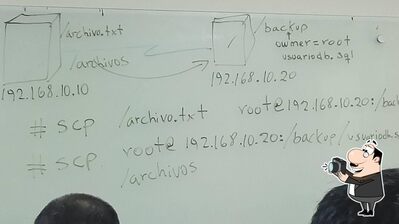 /archivo.txt
/archivos
192.168.10.10
/backup
owner=root
usuariodb.sql
192.168.10.20
# scp /archivo.txt root@192.168.10.20:/b
# scp root@192.168.10.20:/backup/usuariodb.s
/archivos